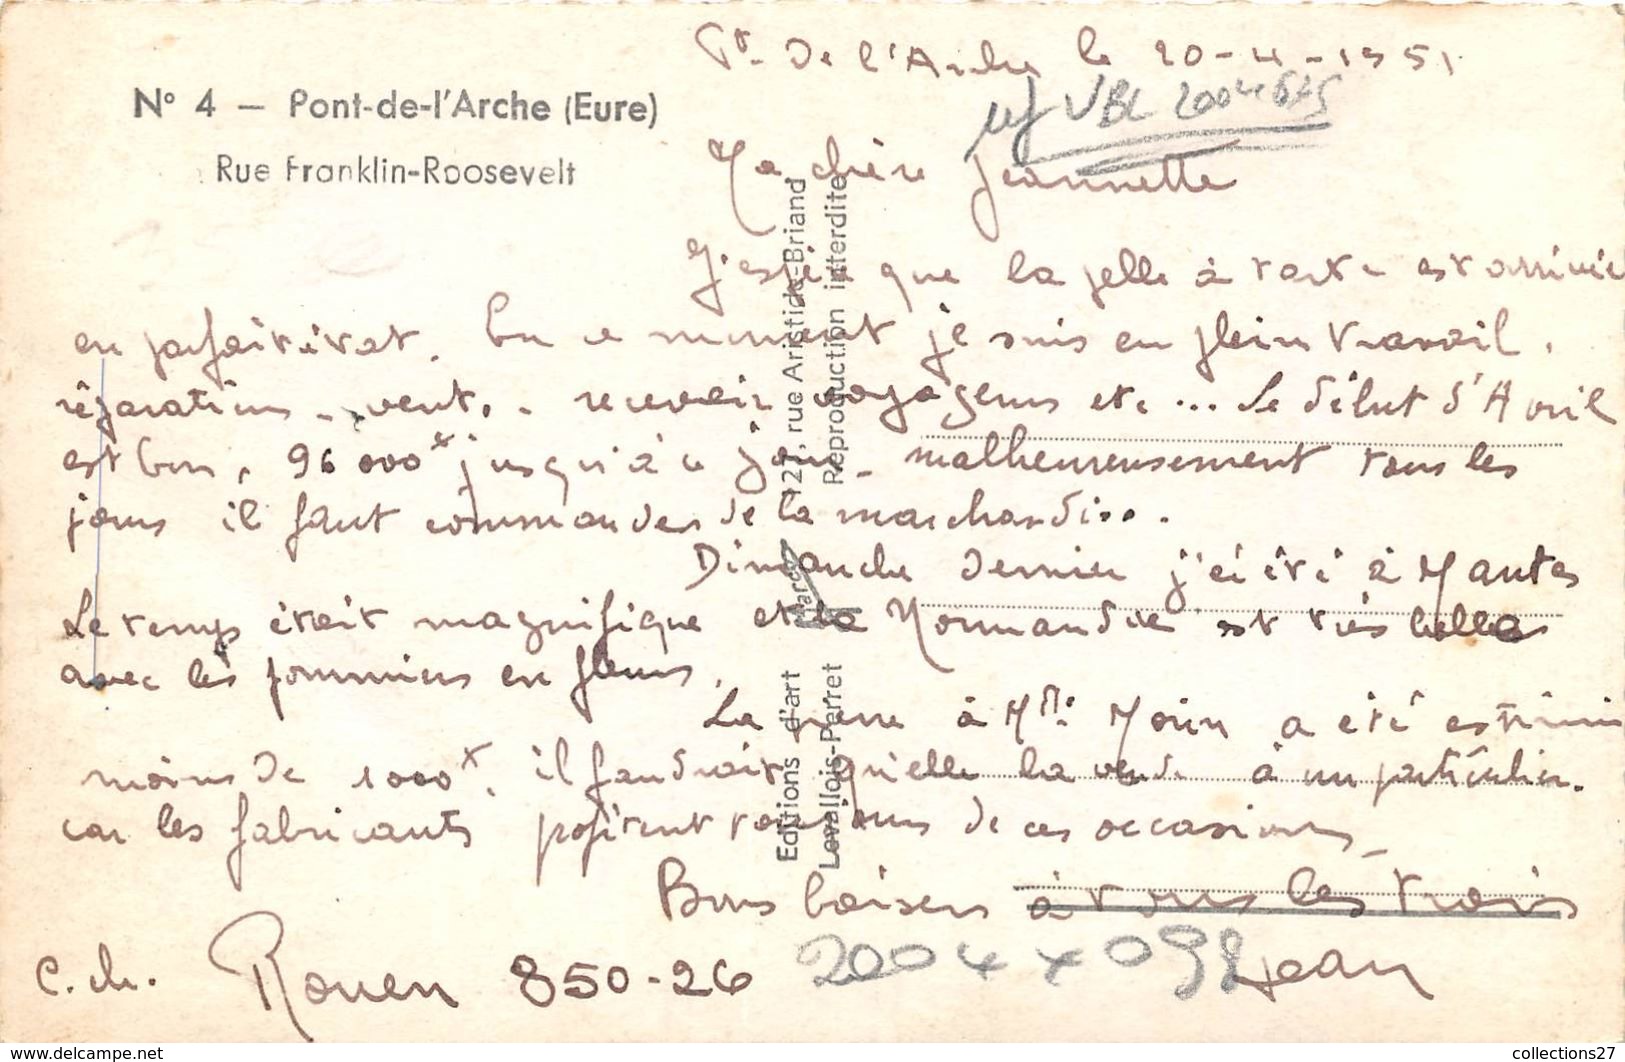 Pt. de l'Arche le 20-4-1951
N° 4 — Pont-de-l'Arche (Eure)
Rue Franklin-Roosevelt
ref VBL 2004
Ma chère Jeannette
J'espère que la pelle à tarte est arrivée
en parfait état. En ce moment je suis en plein travail.
réparations - vent. - recevoir voyageurs etc... Le début d'Avril
est bon, 96 000 jusqu'à ce jour - malheureusement tous les
jours il faut commander de la marchandi...
Dimanche dernier j'ai été à Mantes
Le temps était magnifique et la Normandie est très belle
avec les pommiers en fleurs.
La pierre à Mme Morin a été estimée
moins de 1000, il faudrait qu'elle la vende à un particulier.
car les fabricants profitent toujours de ces occasions
Bons baisers à tous les trois
Jean
C.ch. Rouen 850-26
2004 x 098
Editions d'art
127, rue Aristide-Briand
Levallois-Perret
Reproduction interdite
www.delcampe.net
collections27